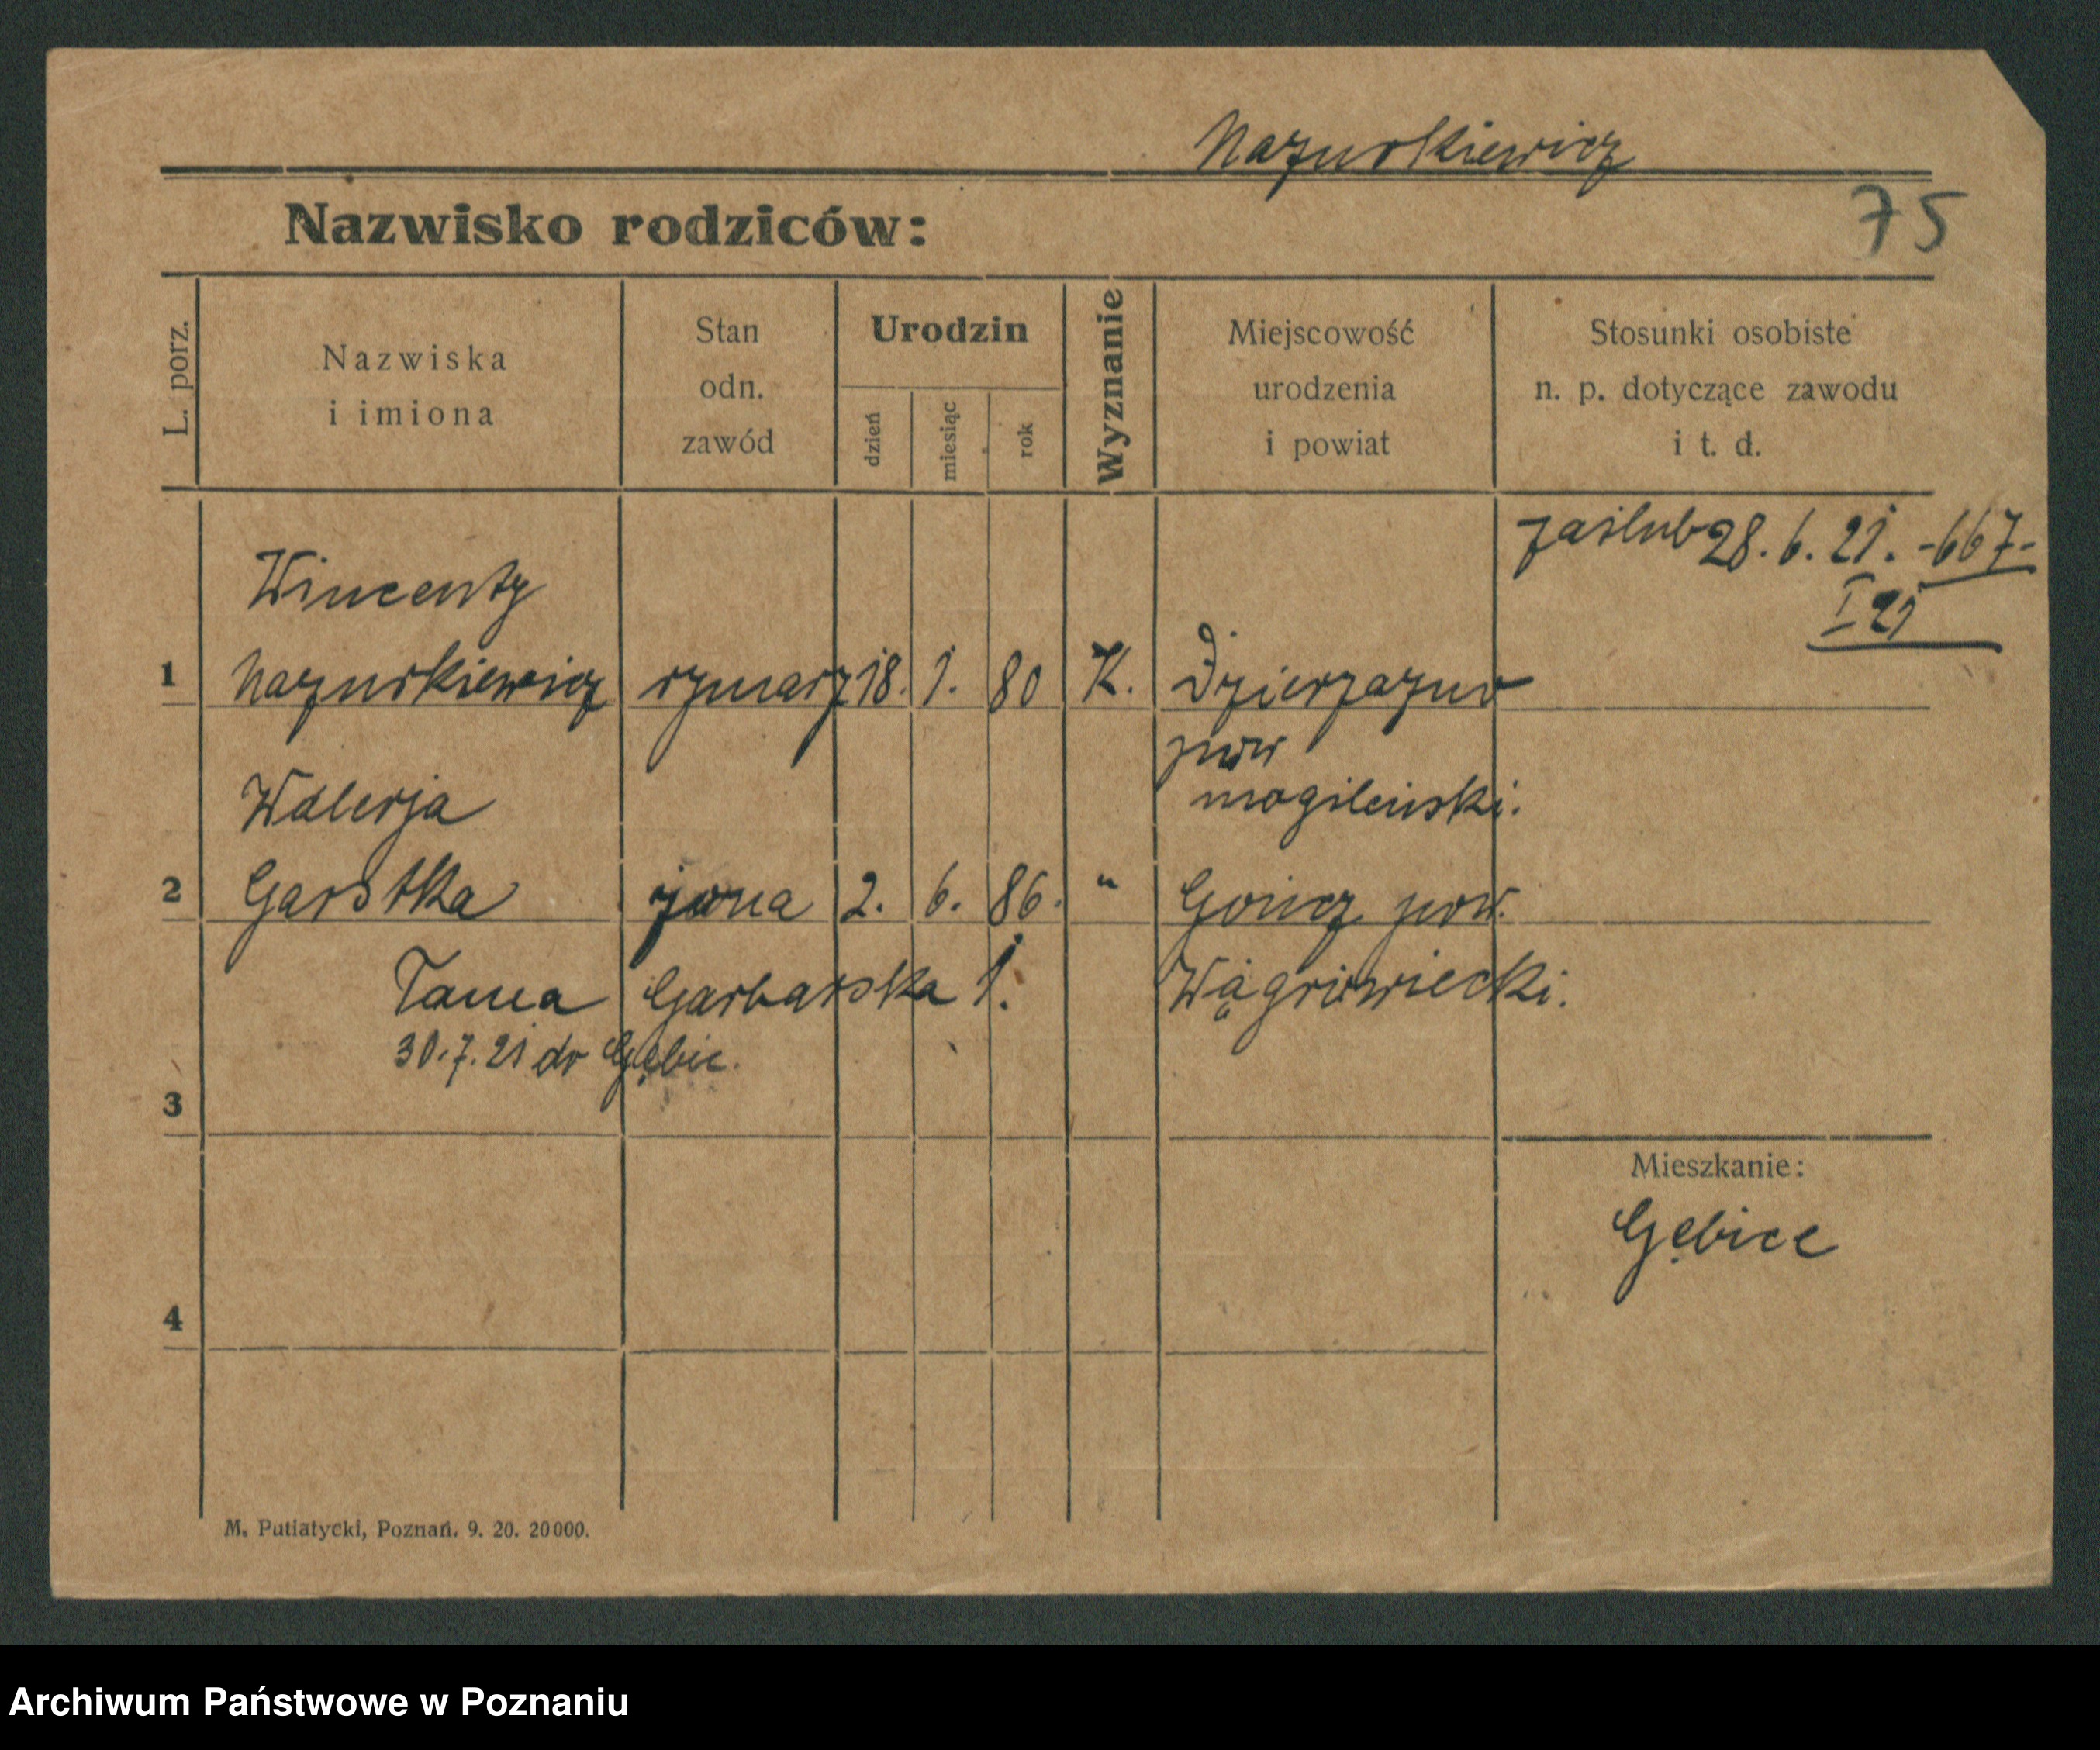 Mazurkiewicz
Nazwisko rodziców:
75
L. porz.
Nazwiska
i imiona
Stan
odn.
zawód
Urodzin
dzień
miesiąc
rok
Wyznanie
Miejscowość
urodzenia
i powiat
Stosunki osobiste
n. p. dotyczące zawodu
i t. d.
zaślub 28. 6. 21. -667-
I 21
Wincenty
1 Mazurkiewicz rymarz 18. 1. 80 K.
pow
mogileński.
Walerja
2 Garstka żona 2. 6. 86. " pow.
Wągrowiecki.
Tama Garbarska 1.
30.7.21 do Gębic.
3
Mieszkanie:
Gębice
4
M. Putiatycki, Poznań. 9. 20. 20000.
Archiwum Państwowe w Poznaniu